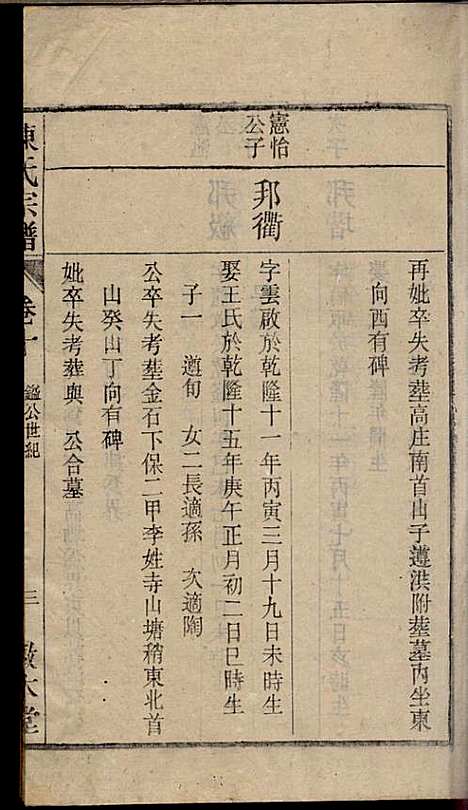 再妣卒失考塟高庄南首山子遵洪附塟墓内坐東
向西有碑
憲怡
公子
邦衢
字雲啟於乾隆十一年丙寅三月十九日未時生
娶王氏於乾隆十五年庚午正月初二日巳時生
子一 遵旬 女二長適孫 次適陶
公卒失考塟金石下保二甲李姓寺山塘稍東北首
山癸山丁向有碑
妣卒失考葬與 公合墓
陳氏宗譜
卷十
鑑公世紀
三
敬大堂